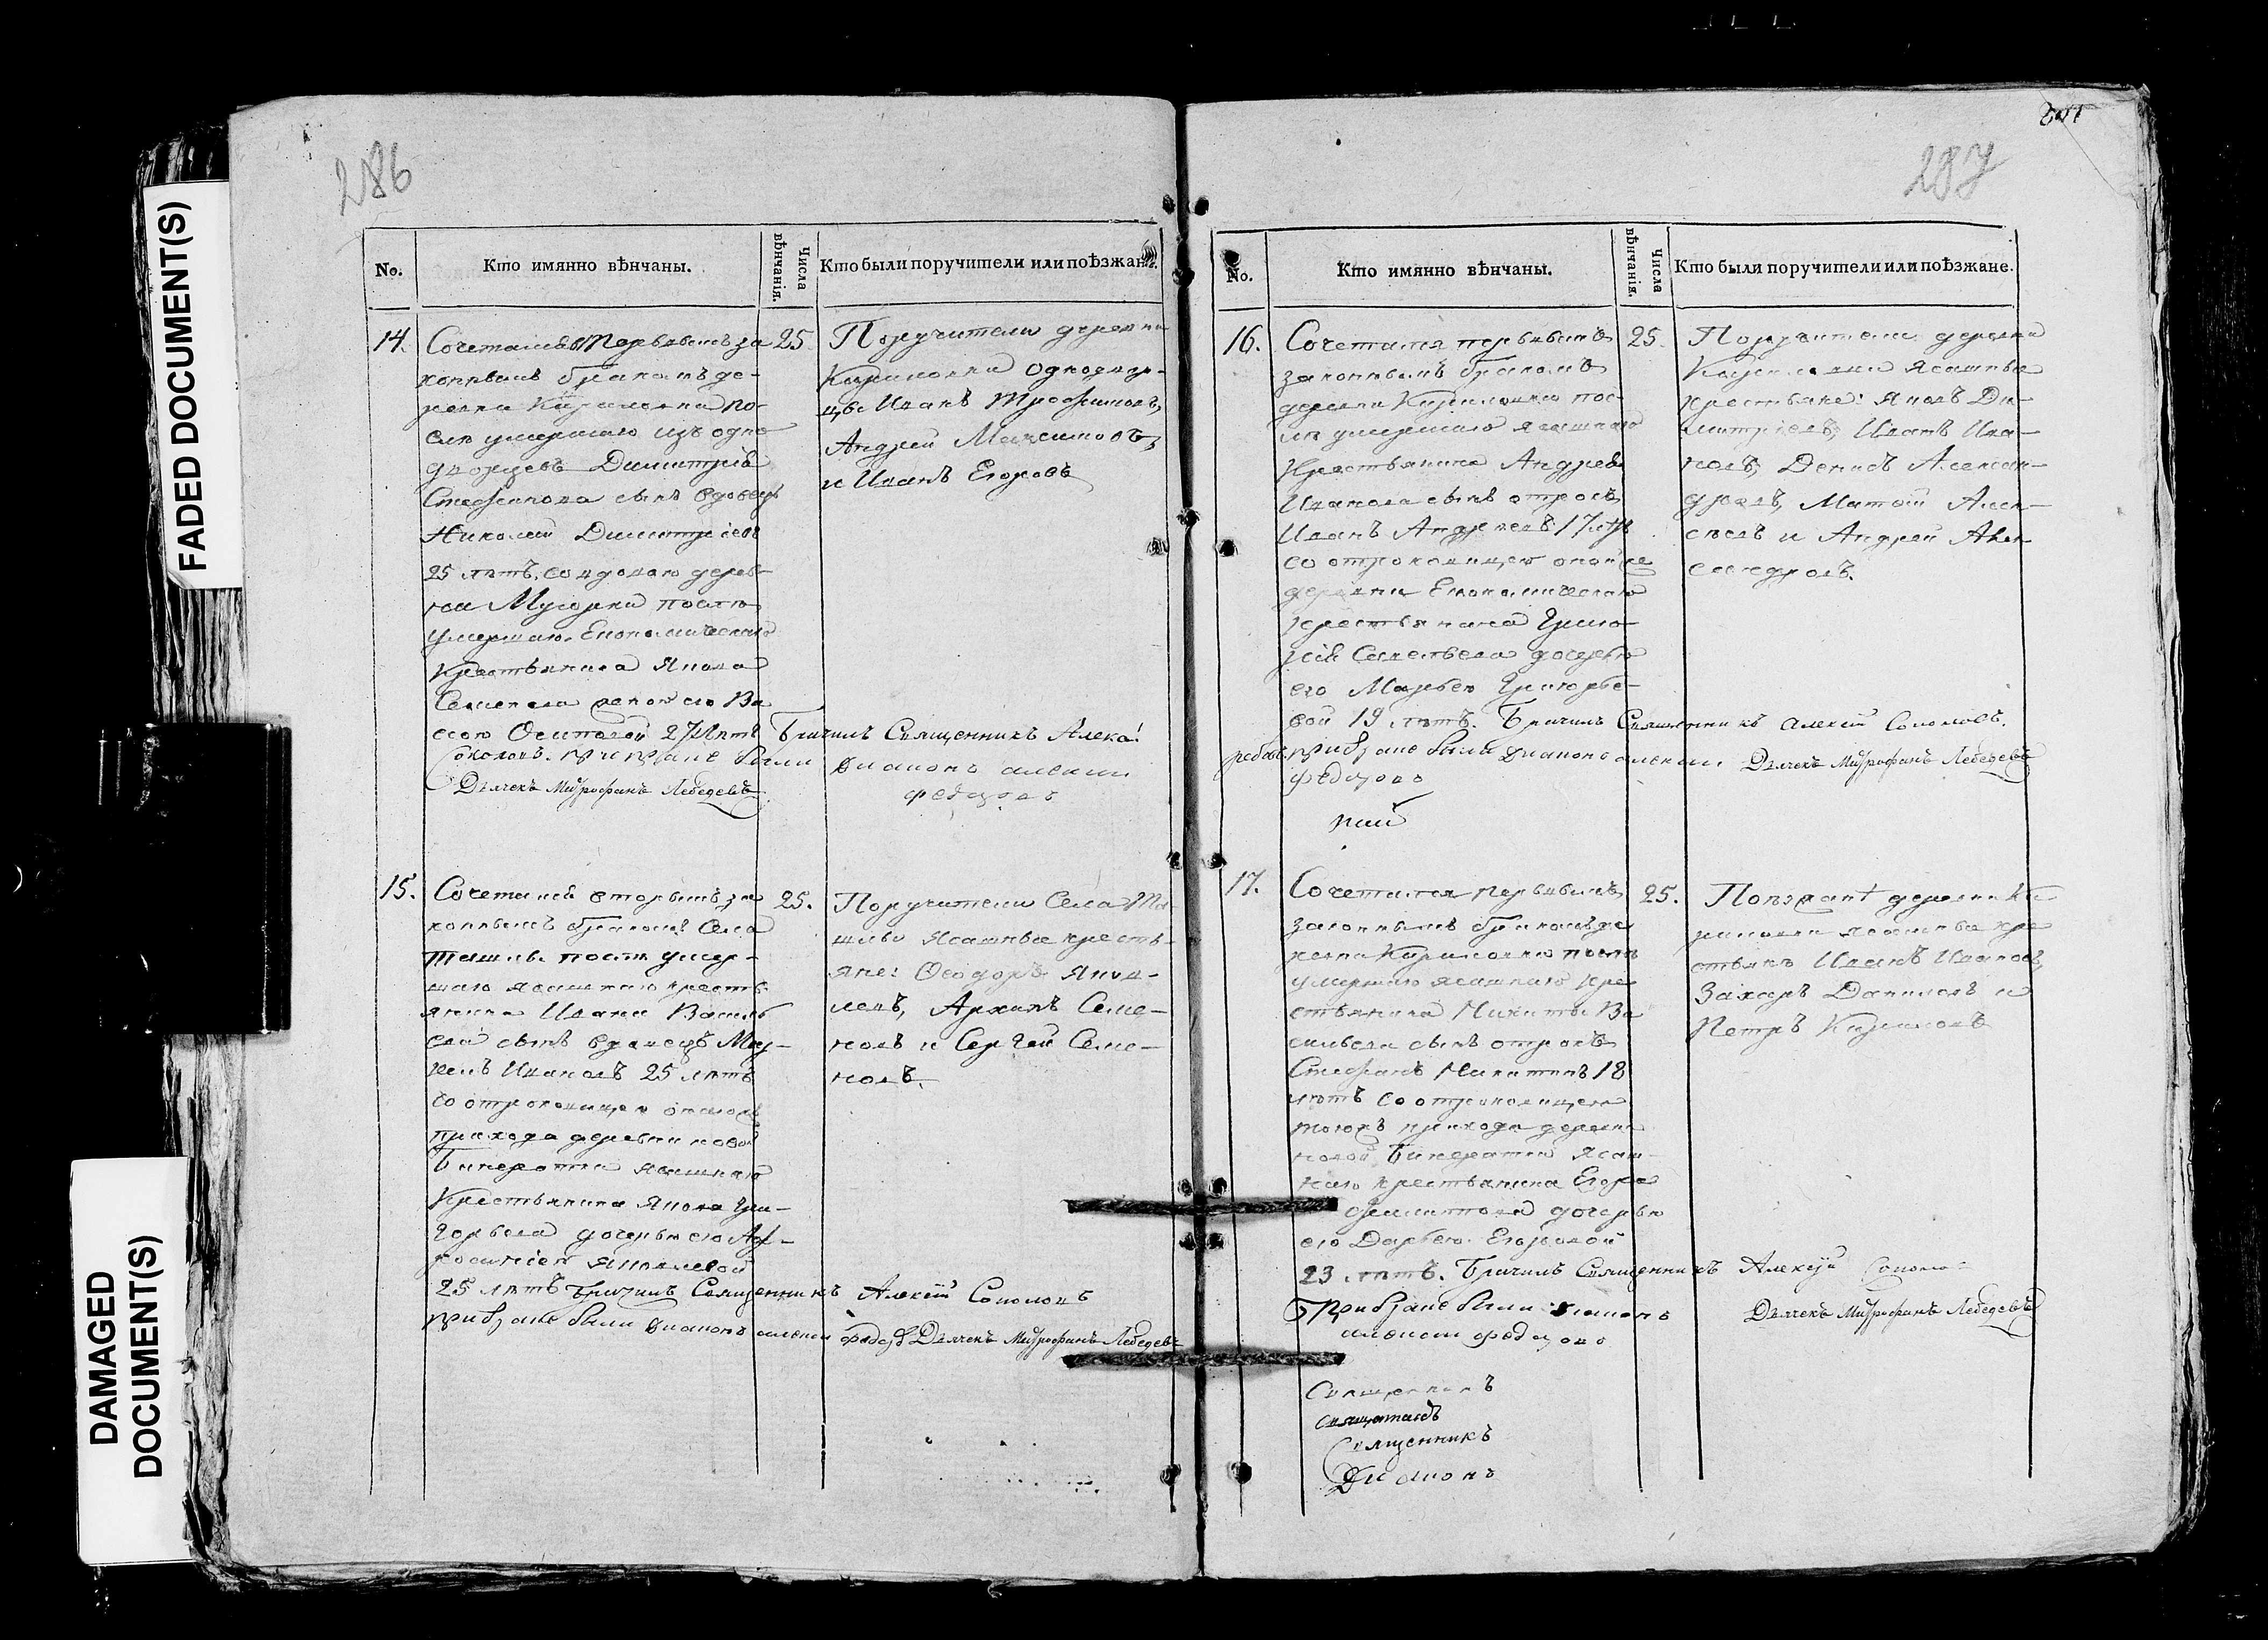 FADED DOCUMENT(S)
DAMAGED
DOCUMENT(S)
286
No.
Кто имянно вѣнчаны.
Числа
вѣнчанія.
Кто были поручители или поѣзжане.
14.
Сочетался первымъ за
коннымъ бракомъ де-
ревни Кириловки по-
слѣ умершаго изъ одно
дворцевъ Димитрія
Стефанова сынъ вдовецъ
Николай Димитріевъ
25 лѣтъ, со вдовою дерев-
ни Мусорки послѣ
умершаго Економическаго
Крестьянина Якова
Семенова женою его Ва
сою Осиповой 27 лѣтъ Вричилъ Священникъ Алекс
Соколовъ. при браке были Диаконъ алексии
федоровъ
Дьячекъ Митрофанъ Лебедевъ
25
Поручители деревни
Кириловки однодвор-
цы Иванъ Трофимовъ,
Андрей Максимовъ,
и Иванъ Егоровъ
15.
Сочетался вторымъ за
коннымъ бракомъ Села
Ташлы послѣ умер-
шаго ясашнаго кресть
янина Ивана Василь
ева сынъ вдовецъ
Ивановъ 25 лѣтъ
со отроковицею
прихода деревни новой
ясашнаго
Крестьянина Якова Гри-
горьева дочерью его Аф-
росиніей Яковлевой
25 лѣтъ Вричилъ Священникъ Алексій Соколовъ
при браке были Диаконъ алексии федоровъ Дьячекъ Митрофанъ Лебедевъ
25.
Поручители Села Та-
шлы Ясашные кресть-
яне: Ѳеодоръ Яков-
левъ, Архипъ Семе-
новъ и Сергей Семе-
новъ.
287
No.
Кто имянно вѣнчаны.
Числа
вѣнчанія.
Кто были поручители или поѣзжане.
16.
Сочетался первымъ
законнымъ бракомъ
деревни Кириловки пос-
лѣ умершаго ясашнаго
Крестьянина Андрея
Иванова сынъ отрокъ
Иванъ Андреевъ 17 лѣтъ
со отроковицею оной же
деревни Економическаго
крестьянина Григо-
рія Савельева дочерью
его Марьею Григорье-
вой 19 лѣтъ. Вричилъ Священникъ Алексій Соколовъ.
при браке были Диаконъ алексии Дьячекъ Митрофанъ Лебедевъ
федоровъ
25.
Поручители деревни
Кириловки Ясашные
крестьяне: Яковъ Ди-
митріевъ, Иванъ Ива-
новъ, Денисъ Алексан-
дровъ, Матвей Алек-
сѣевъ и Андрей Алек-
сандровъ.
17.
Сочетался первымъ
законнымъ бракомъ де
ревни Кириловки послѣ
умершаго ясашнаго кре
стьянина Никиты Ва
сильева сынъ отрокъ
Стефанъ Никитинъ 18
лѣтъ со отроковицею
тогожъ прихода деревни
новой Ясаш-
наго крестьянина Егора
дочерью
его Дарьею Егоровой
23 лѣтъ. Вричилъ Священникъ Алексій Соколо
При браке были Диаконъ
алексии федоровъ
Дьячекъ Митрофанъ Лебедевъ
25.
Поѣзжане деревни Ки
риловки ясашные кре
стьяне Иванъ Ивановъ,
Захаръ Даниловъ и
Петръ Кириловъ
Священникъ
Диаконъ